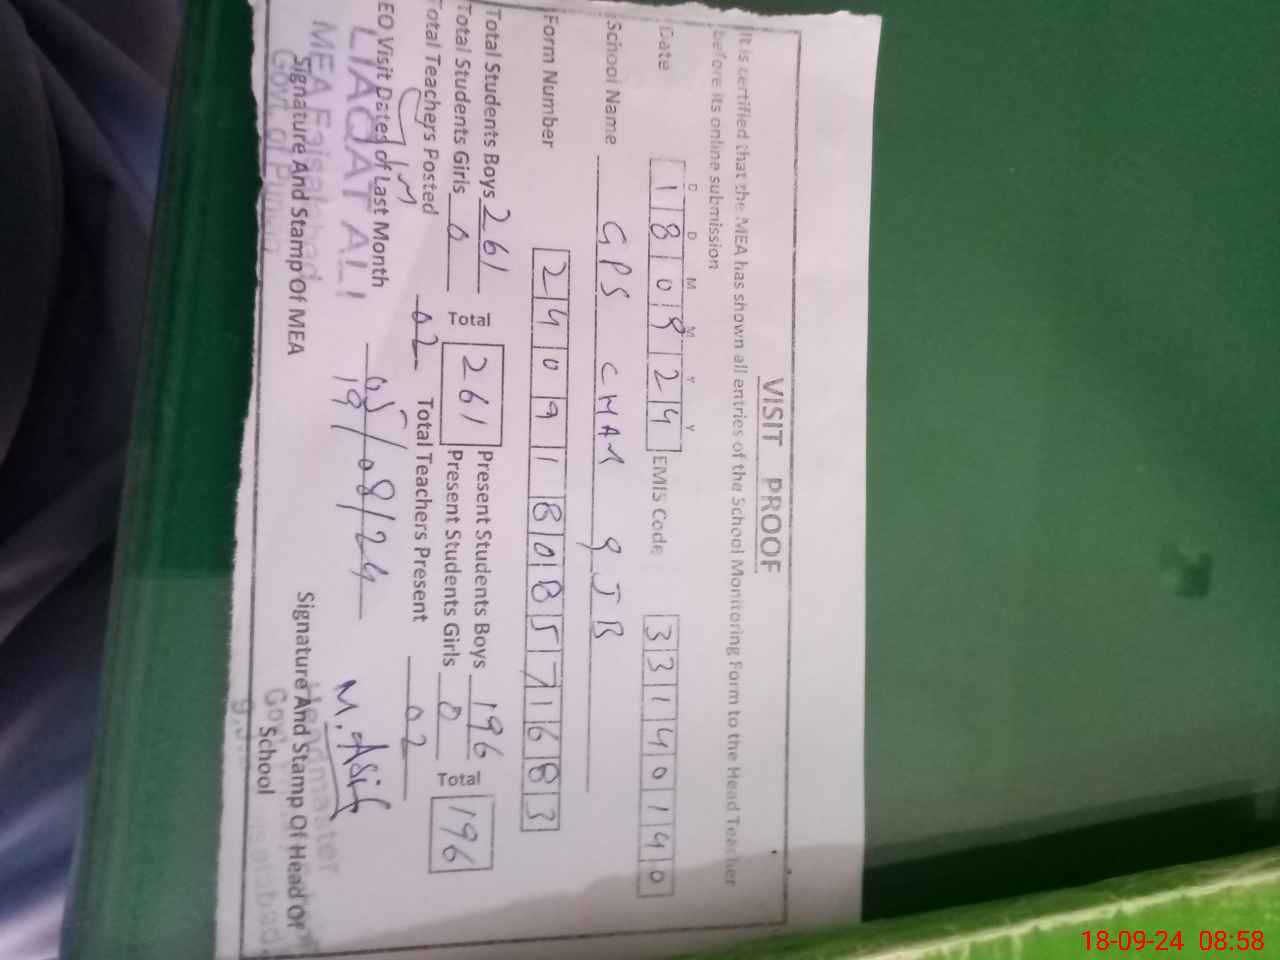 VISIT PROOF
It is certified that the MEA has shown all entries of the School Monitoring Form to the Head Teacher
before its online submission
D D M M Y Y
Date 180924 EMIS Code 33140140
School Name GPS CHAK 9 JB
Form Number 24091808571683
Total Students Boys 261 Total 261 Present Students Boys 196 Total 196
Total Students Girls 0 Present Students Girls 0
Total Teachers Posted 02 Total Teachers Present 02
EO Visit Dates of Last Month 05/08/24
19
LIAQAT ALI
MEA Faisalabad
M. Asif
Signature And Stamp Of MEA
Signature And Stamp Of Head Of
School
Headmaster
18-09-24 08:58